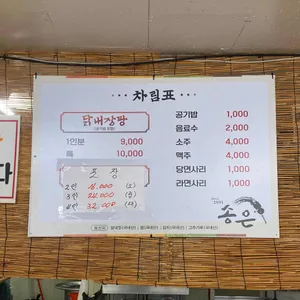 차림표
닭내장탕
(공기밥 포함)
1인분 9,000
특 10,000
포장
2인 16,000 (소)
3인 24,000 (중)
4인 32,000 (대)
공기밥 1,000
음료수 2,000
소주 4,000
맥주 4,000
당면사리 1,000
라면사리 1,000
송은
다